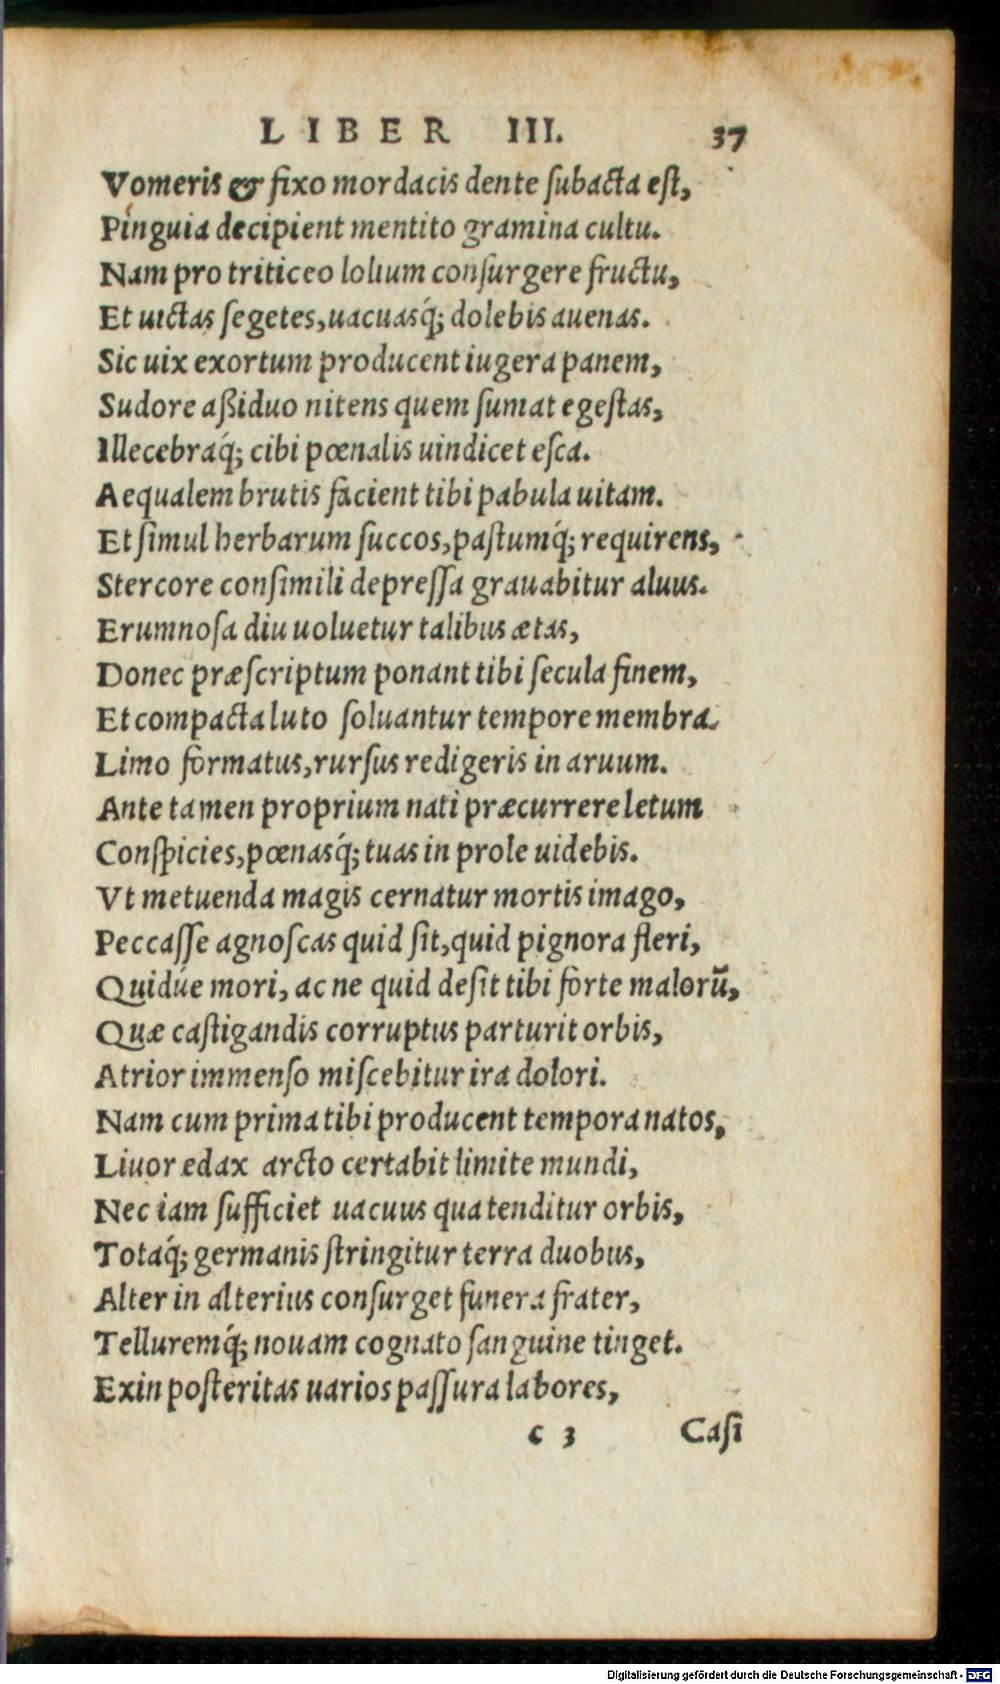 LIBER III. 37
Vomeris & fixo mordacis dente subacta est,
Pinguia decipient mentito gramina cultu.
Nam pro triticeo lolium consurgere fructu,
Et uictas segetes, uacuasq́; dolebis auenas.
Sic uix exortum producent iugera panem,
Sudore aßiduo nitens quem sumat egestas,
Illecebraq́; cibi pœnalis uindicet esca.
Aequalem brutis facient tibi pabula uitam.
Et simul herbarum succos, pastumq́; requirens,
Stercore consimili depressa grauabitur aluus.
Erumnosa diu uoluetur talibus ætas,
Donec præscriptum ponant tibi secula finem,
Et compacta luto soluantur tempore membra.
Limo formatus, rursus redigeris in aruum.
Ante tamen proprium nati præcurrere letum
Conspicies, pœnasq́; tuas in prole uidebis.
Vt metuenda magis cernatur mortis imago,
Peccasse agnoscas quid sit, quid pignora fleri,
Quidúe mori, ac ne quid desit tibi forte malorū,
Quæ castigandis corruptus parturit orbis,
Atrior immenso miscebitur ira dolori.
Nam cum prima tibi producent tempora natos,
Liuor edax arcto certabit limite mundi,
Nec iam sufficiet uacuus qua tenditur orbis,
Totaq́; germanis stringitur terra duobus,
Alter in alterius consurget funera frater,
Telluremq́; nouam cognato sanguine tinget.
Exin posteritas uarios passura labores,
c 3 Casi
Digitalisierung gefördert durch die Deutsche Forschungsgemeinschaft - DFG